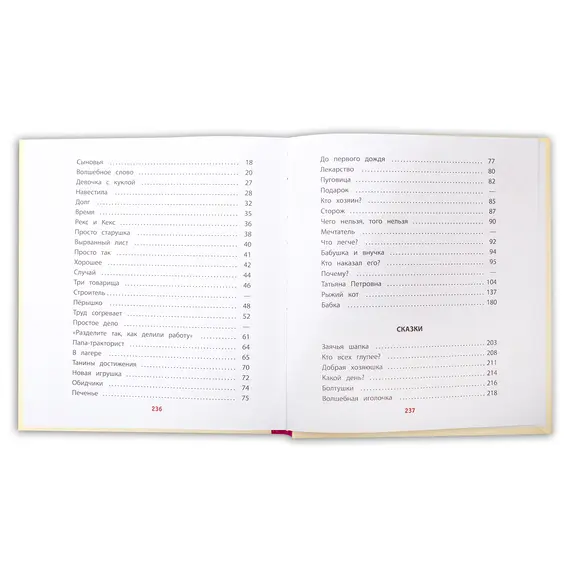 Сыновья 18
Волшебное слово 20
Девочка с куклой 27
Навестила 28
Долг 32
Время 35
Рекс и Кекс 36
Просто старушка 38
Вырванный лист 40
Просто так 41
Хорошее 42
Случай 44
Три товарища 46
Строитель —
Пёрышко 48
Труд согревает 52
Простое дело —
«Разделите так, как делили работу» 61
Папа-тракторист 64
В лагере 67
Танины достижения 70
Новая игрушка 72
Обидчики 74
Печенье 75
236
До первого дождя 77
Лекарство 80
Пуговица 82
Подарок —
Кто хозяин? 85
Сторож 87
Чего нельзя, того нельзя 90
Мечтатель —
Что легче? 92
Бабушка и внучка 94
Кто наказал его? 95
Почему? —
Татьяна Петровна 104
Рыжий кот 137
Бабка 180
СКАЗКИ
Заячья шапка 203
Кто всех глупее? 208
Добрая хозяюшка 211
Какой день? 214
Болтушки 216
Волшебная иголочка 218
237